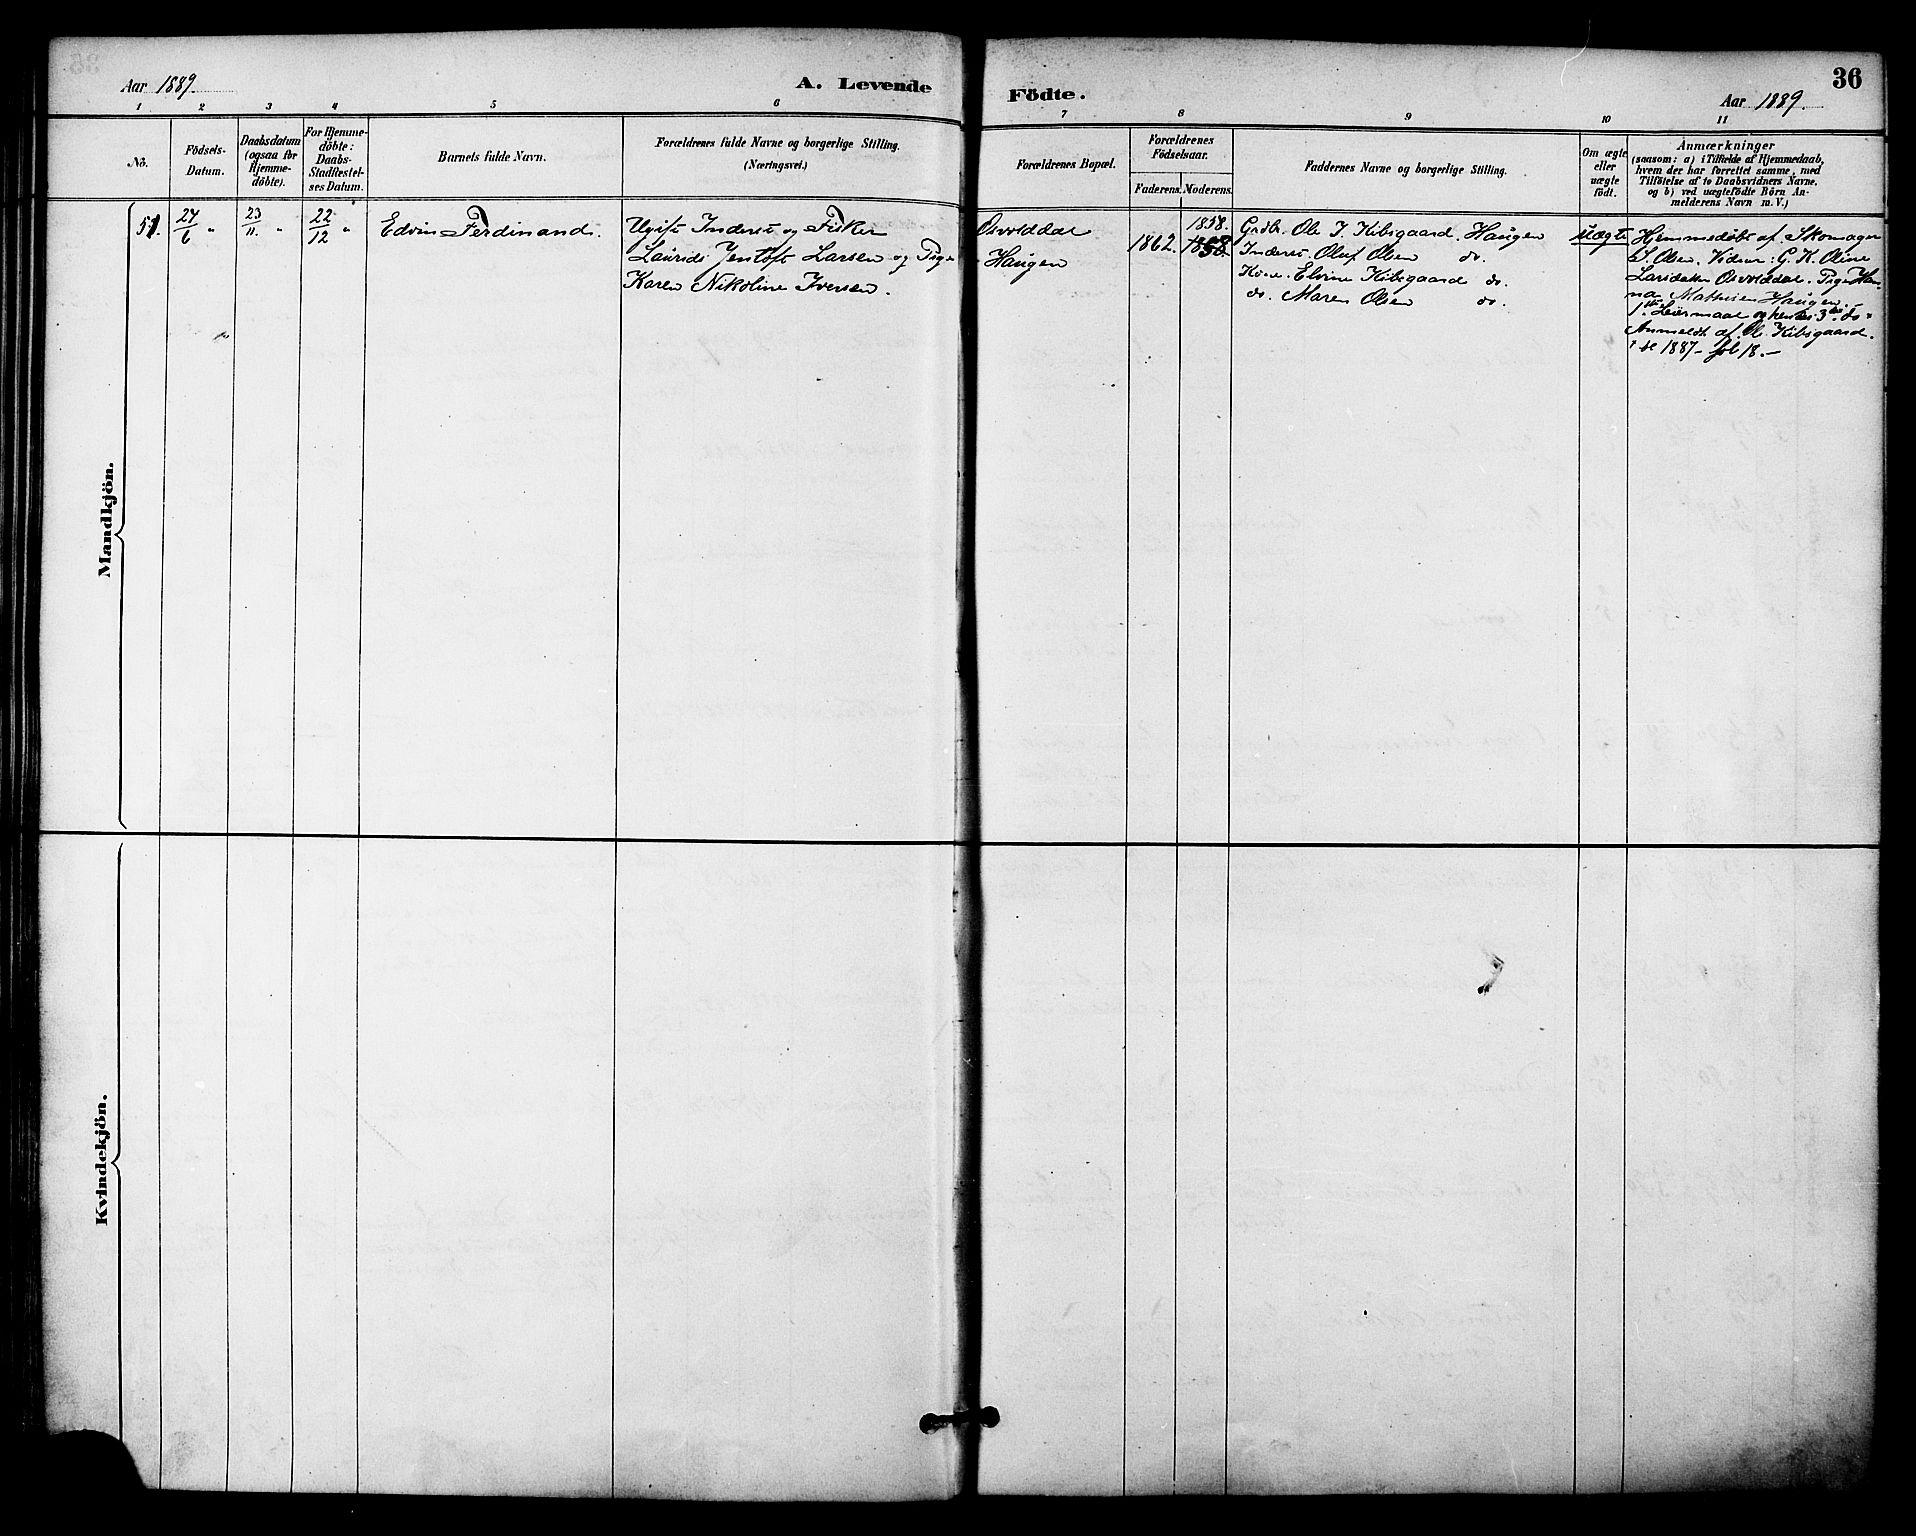 Aar 1889.
A. Levende
Födte.
Aar 1889.
36
1 2 3 4 5 6 7 8 9 10 11
No.
Födsels-
Datum.
Daabsdatum
(ogsaa for
Hjemme-
döbte).
For Hjemme-
döbte:
Daabs-
Stadfestel-
ses Datum.
Barnets fulde Navn.
Forældrenes fulde Navne og borgerlige Stilling.
(Næringsvei.)
Forældrenes Bopæl.
Forældrenes
Födselsaar.
Faderens. Moderens.
Faddernes Navne og borgerlige Stilling.
Om ægte
eller
uægte
födt.
Anmærkninger
(saasom: a) i Tilfælde af Hjemmedaab,
hvem der har forrettet samme, med
Tilföielse af to Daabsvidners Navne,
og b) ved uægtefödte Börn An-
melderens Navn m. V.)
Mandkjön.
51
27/6 "
23/11. "
22/12 "
Edvin Ferdinand.
Ugift Inderst og Fisker
Laurids Jentoft Larsen og Pige
Karen Nikoline Iversen.
Osvolddal
Haugen
1862.
1858.
Grdbr. Ole I. Kibsgaard. Haugen
Inderst. Oluf Olsen do.
Kone. Elvine Kibsgaard do.
do. Maren Olsen do.
uægte
Hjemmedöbt af Skomager
Olsen. Vidner: G. K. Oline
Larsdatter Osvolddal. Pige Han-
na Mathisen Haugen.
1ste Leiermaal og hendes 3die do
Anmeldt af Ol. Kibsgaard.
se 1887 - fol 18.-
Kvindekjön.